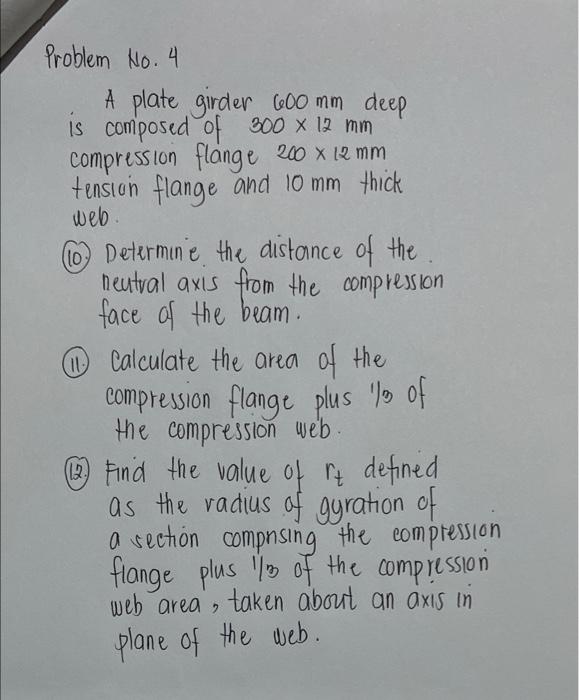 Problem No. 4
A plate girder 600 mm deep
is composed of 300 x 12 mm
compression flange 200 x 12 mm
tension flange and 10 mm thick
web.
10. Determine the distance of the
neutral axis from the compression
face of the beam.
11. Calculate the area of the
compression flange plus 1/3 of
the compression web.
12. Find the value of rt defined
as the radius of gyration of
a section comprising the compression
flange plus 1/3 of the compression
web area, taken about an axis in
plane of the web.